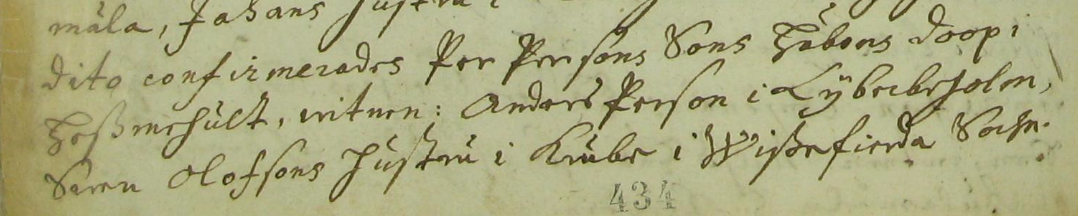 måla, Jahans hustru i
dito confirmerades Per Persons Sons Håkons doop i
Heßmehult, vitnen: Anders Person i Lyberbeholm,
Swen Olofsons hustru i Krube i Wißefierda Sochn.
434